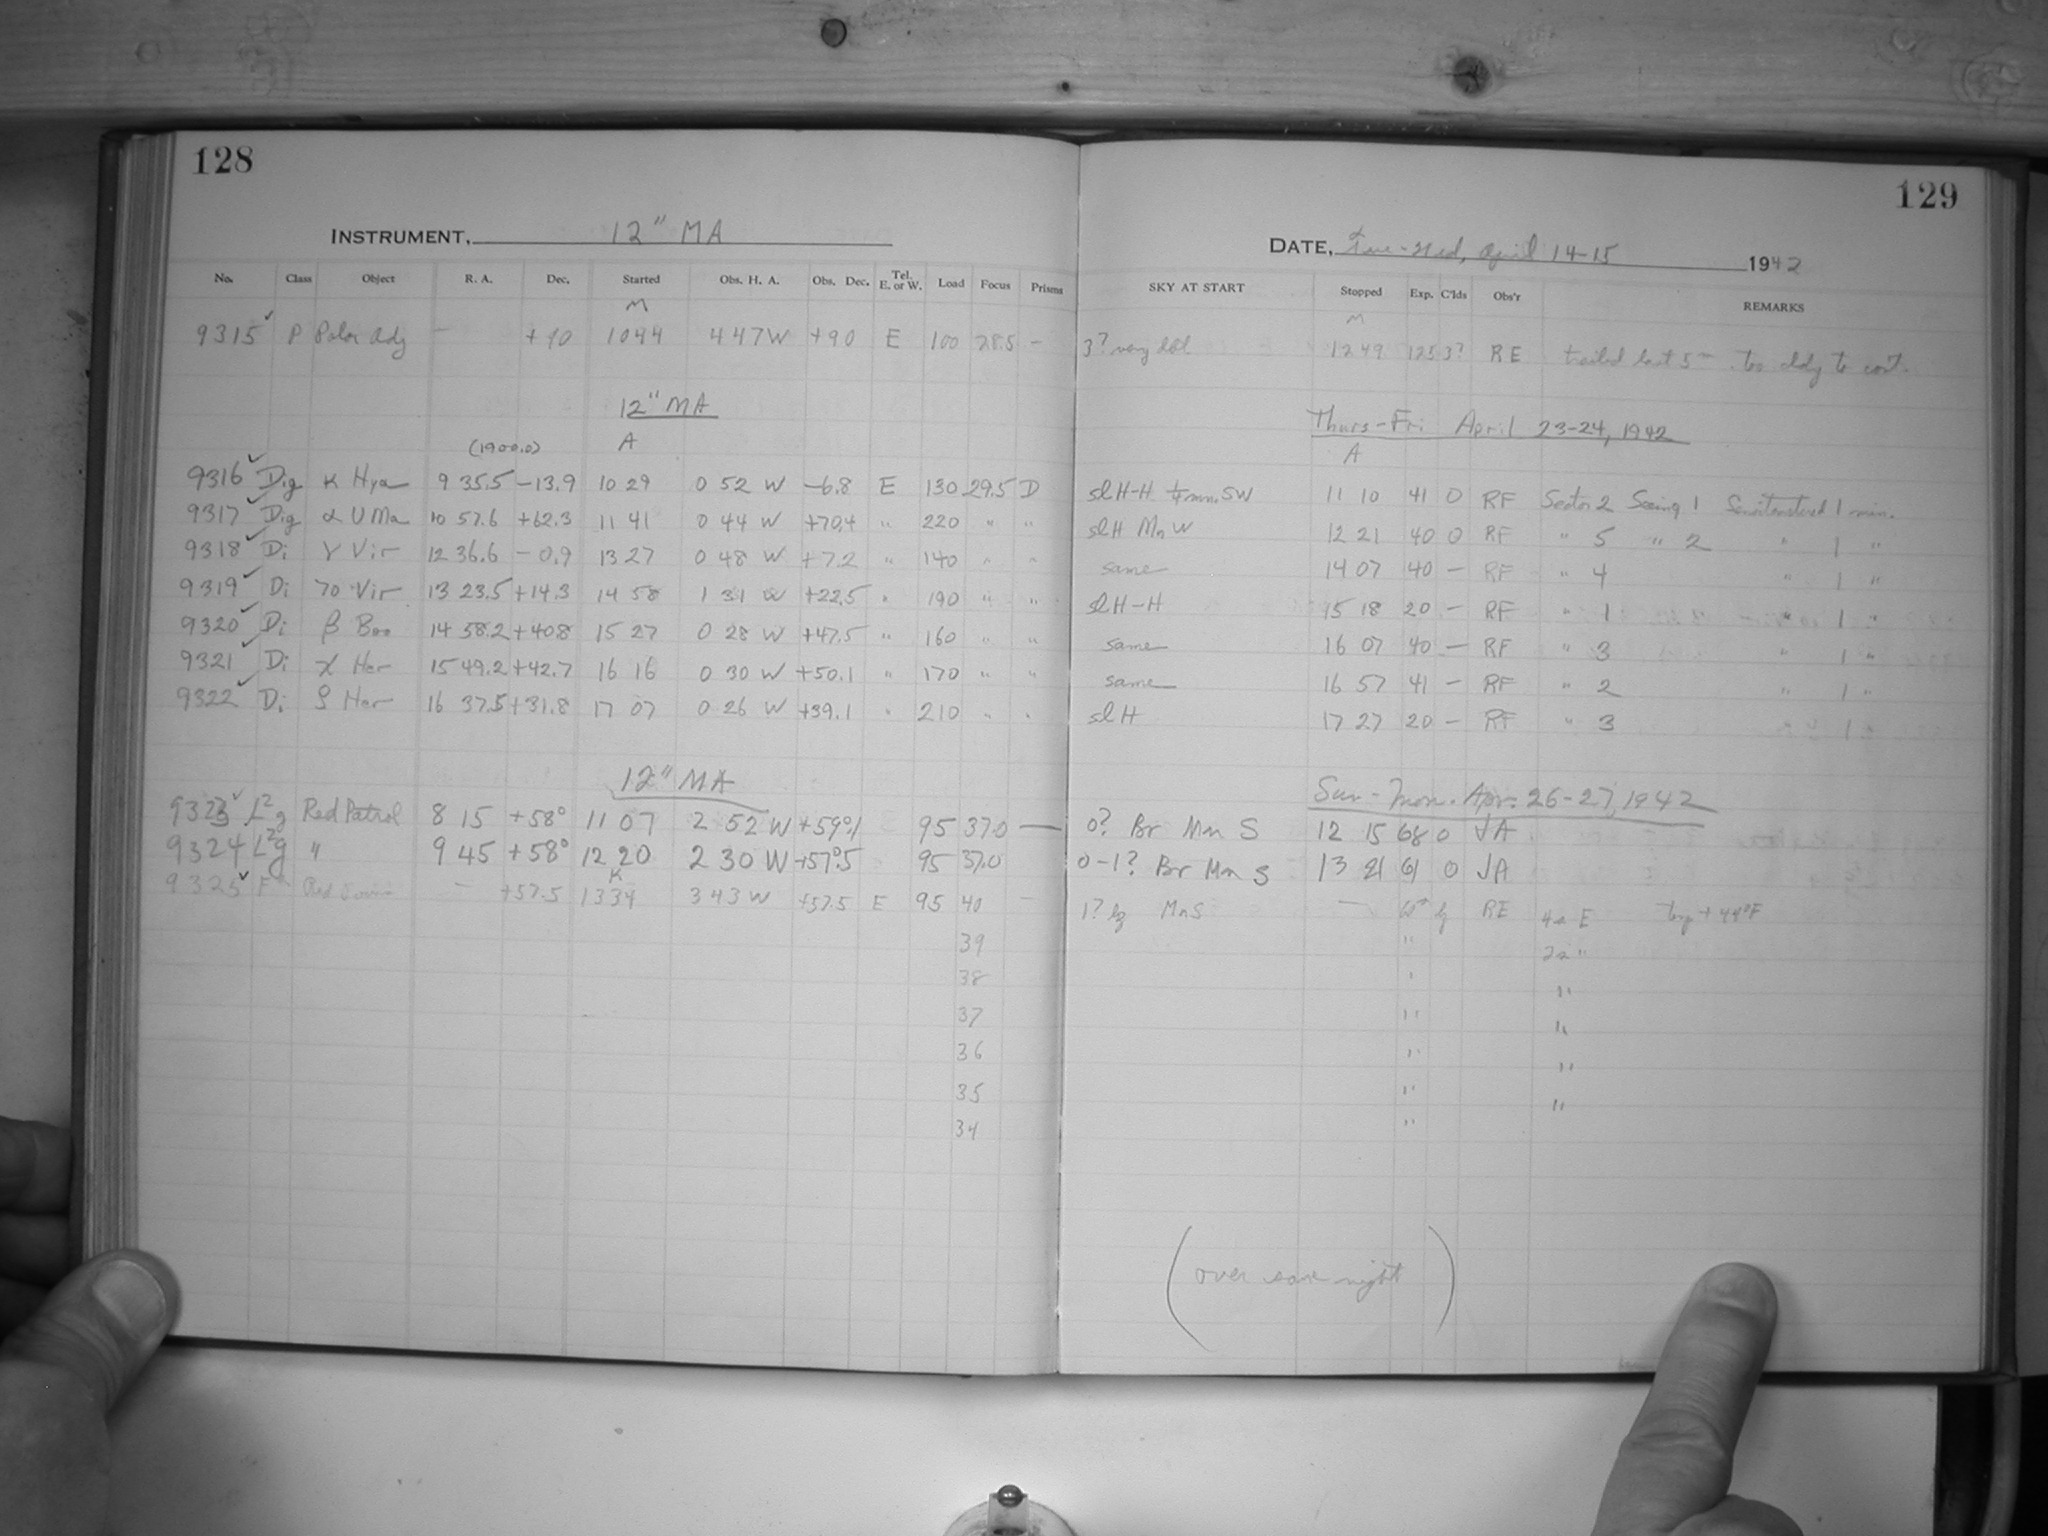 128
INSTRUMENT, 12" MA
No. Class Object R. A. Dec. Started Obs. H. A. Obs. Dec. Tel. E. or W. Load Focus Prisms
M
9315 ✓ P Polar Adj — +90 1044 4 47 W +90 E 100 28.5 —
12" MA
(1900.0) A
9316 ✓ Dig κ Hya 9 35.5 -13.9 10 29 0 52 W -6.8 E 130 29.5 D
9317 ✓ Dig α U Ma 10 57.6 +62.3 11 41 0 44 W +70.4 " 220 " "
9318 ✓ Di γ Vir 12 36.6 -0.9 13 27 0 48 W +7.2 " 140 " "
9319 ✓ Di 70 Vir 13 23.5 +14.3 14 58 1 31 W +22.5 " 190 " "
9320 ✓ Di β Boo 14 58.2 +40.8 15 27 0 28 W +47.5 " 160 " "
9321 ✓ Di χ Her 15 49.2 +42.7 16 16 0 30 W +50.1 " 170 " "
9322 ✓ Di ζ Her 16 37.5 +31.8 17 07 0 26 W +39.1 " 210 " "
12" MA
9323 ✓ L²g Red Patrol 8 15 +58° 11 07 2 52 W +59°.1 95 37.0 —
9324 L²g " 9 45 +58° 12 20 2 30 W +57°.5 95 37.0
9325 ✓ F Red — +57.5 1334 3 43 W +57.5 E 95 40 —
39
38
37
36
35
34
129
DATE, Tue-Wed, April 14-15 1942
SKY AT START Stopped Exp. C'lds Obs'r REMARKS
M
3? very 1249 125 3? RE trailed last 5m too cldy to cont.
Thurs-Fri April 23-24, 1942
A
sl H-H ¼ mn. SW 11 10 41 0 RF Sector 2 Seeing 1 Sensitometered 1 min.
sl H Mn W 12 21 40 0 RF " 5 " 2 " 1 "
same 14 07 40 — RF " 4 " 1 "
sl H-H 15 18 20 — RF " 1 " 1 "
same 16 07 40 — RF " 3 " 1 "
same 16 57 41 — RF " 2 " 1 "
sl H 17 27 20 — RF " 3 " 1 "
Sun-Mon. Apr. 26-27, 1942
0? Br Mn S 12 15 68 0 JA
0-1? Br Mn S 13 21 61 0 JA
1? hz Mn S — RE E Temp + 44°F
" "
" "
" "
" "
" "
"
(over same night)